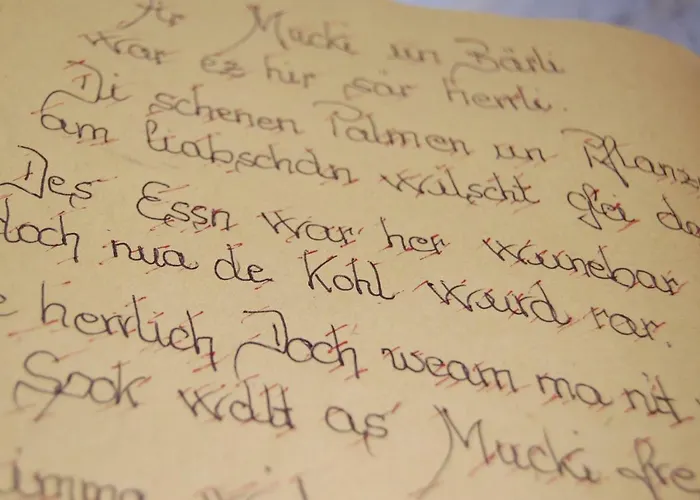 fir Mucki un Bärli
war es hir sär herrli.
Di schenen Palmen un Pflanz
am liabschdn wulscht glei da
Des Essn war her wunebar
doch nua de Kohl wurd rar.
e herrlich Doch weam ma nit
Sook wüllt as Mucki fre
imma